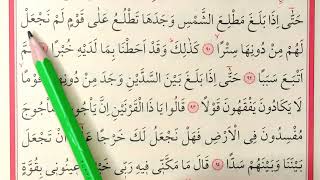 حَتّٰٓى اِذَا بَلَغَ مَطْلِعَ الشَّمْسِ وَجَدَهَا تَطْلُعُ عَلٰى قَوْمٍ لَمْ نَجْعَلْ
لَهُمْ مِنْ دُونِهَا سِتْرًاۙ ٩٠ كَذٰلِكَۜ وَقَدْ اَحَطْنَا بِمَا لَدَيْهِ خُبْرًا ٩١ ثُمَّ
اَتْبَعَ سَبَبًا ٩٢ حَتّٰٓى اِذَا بَلَغَ بَيْنَ السَّدَّيْنِ وَجَدَ مِنْ دُونِهِمَا قَوْمًاۙ
لَا يَكَادُونَ يَفْقَهُونَ قَوْلًا ٩٣ قَالُوا يَا ذَا الْقَرْنَيْنِ اِنَّ يَأْجُوجَ وَمَأْجُوجَ
مُفْسِدُونَ فِي الْاَرْضِ فَهَلْ نَجْعَلُ لَكَ خَرْجًا عَلٰٓى اَنْ تَجْعَلَ
بَيْنَنَا وَبَيْنَهُمْ سَدًّا ٩٤ قَالَ مَا مَكَّنّٖي فٖيهِ رَبّٖي خَيْرٌ فَاَعٖينُونٖي بِقُوَّةٍ